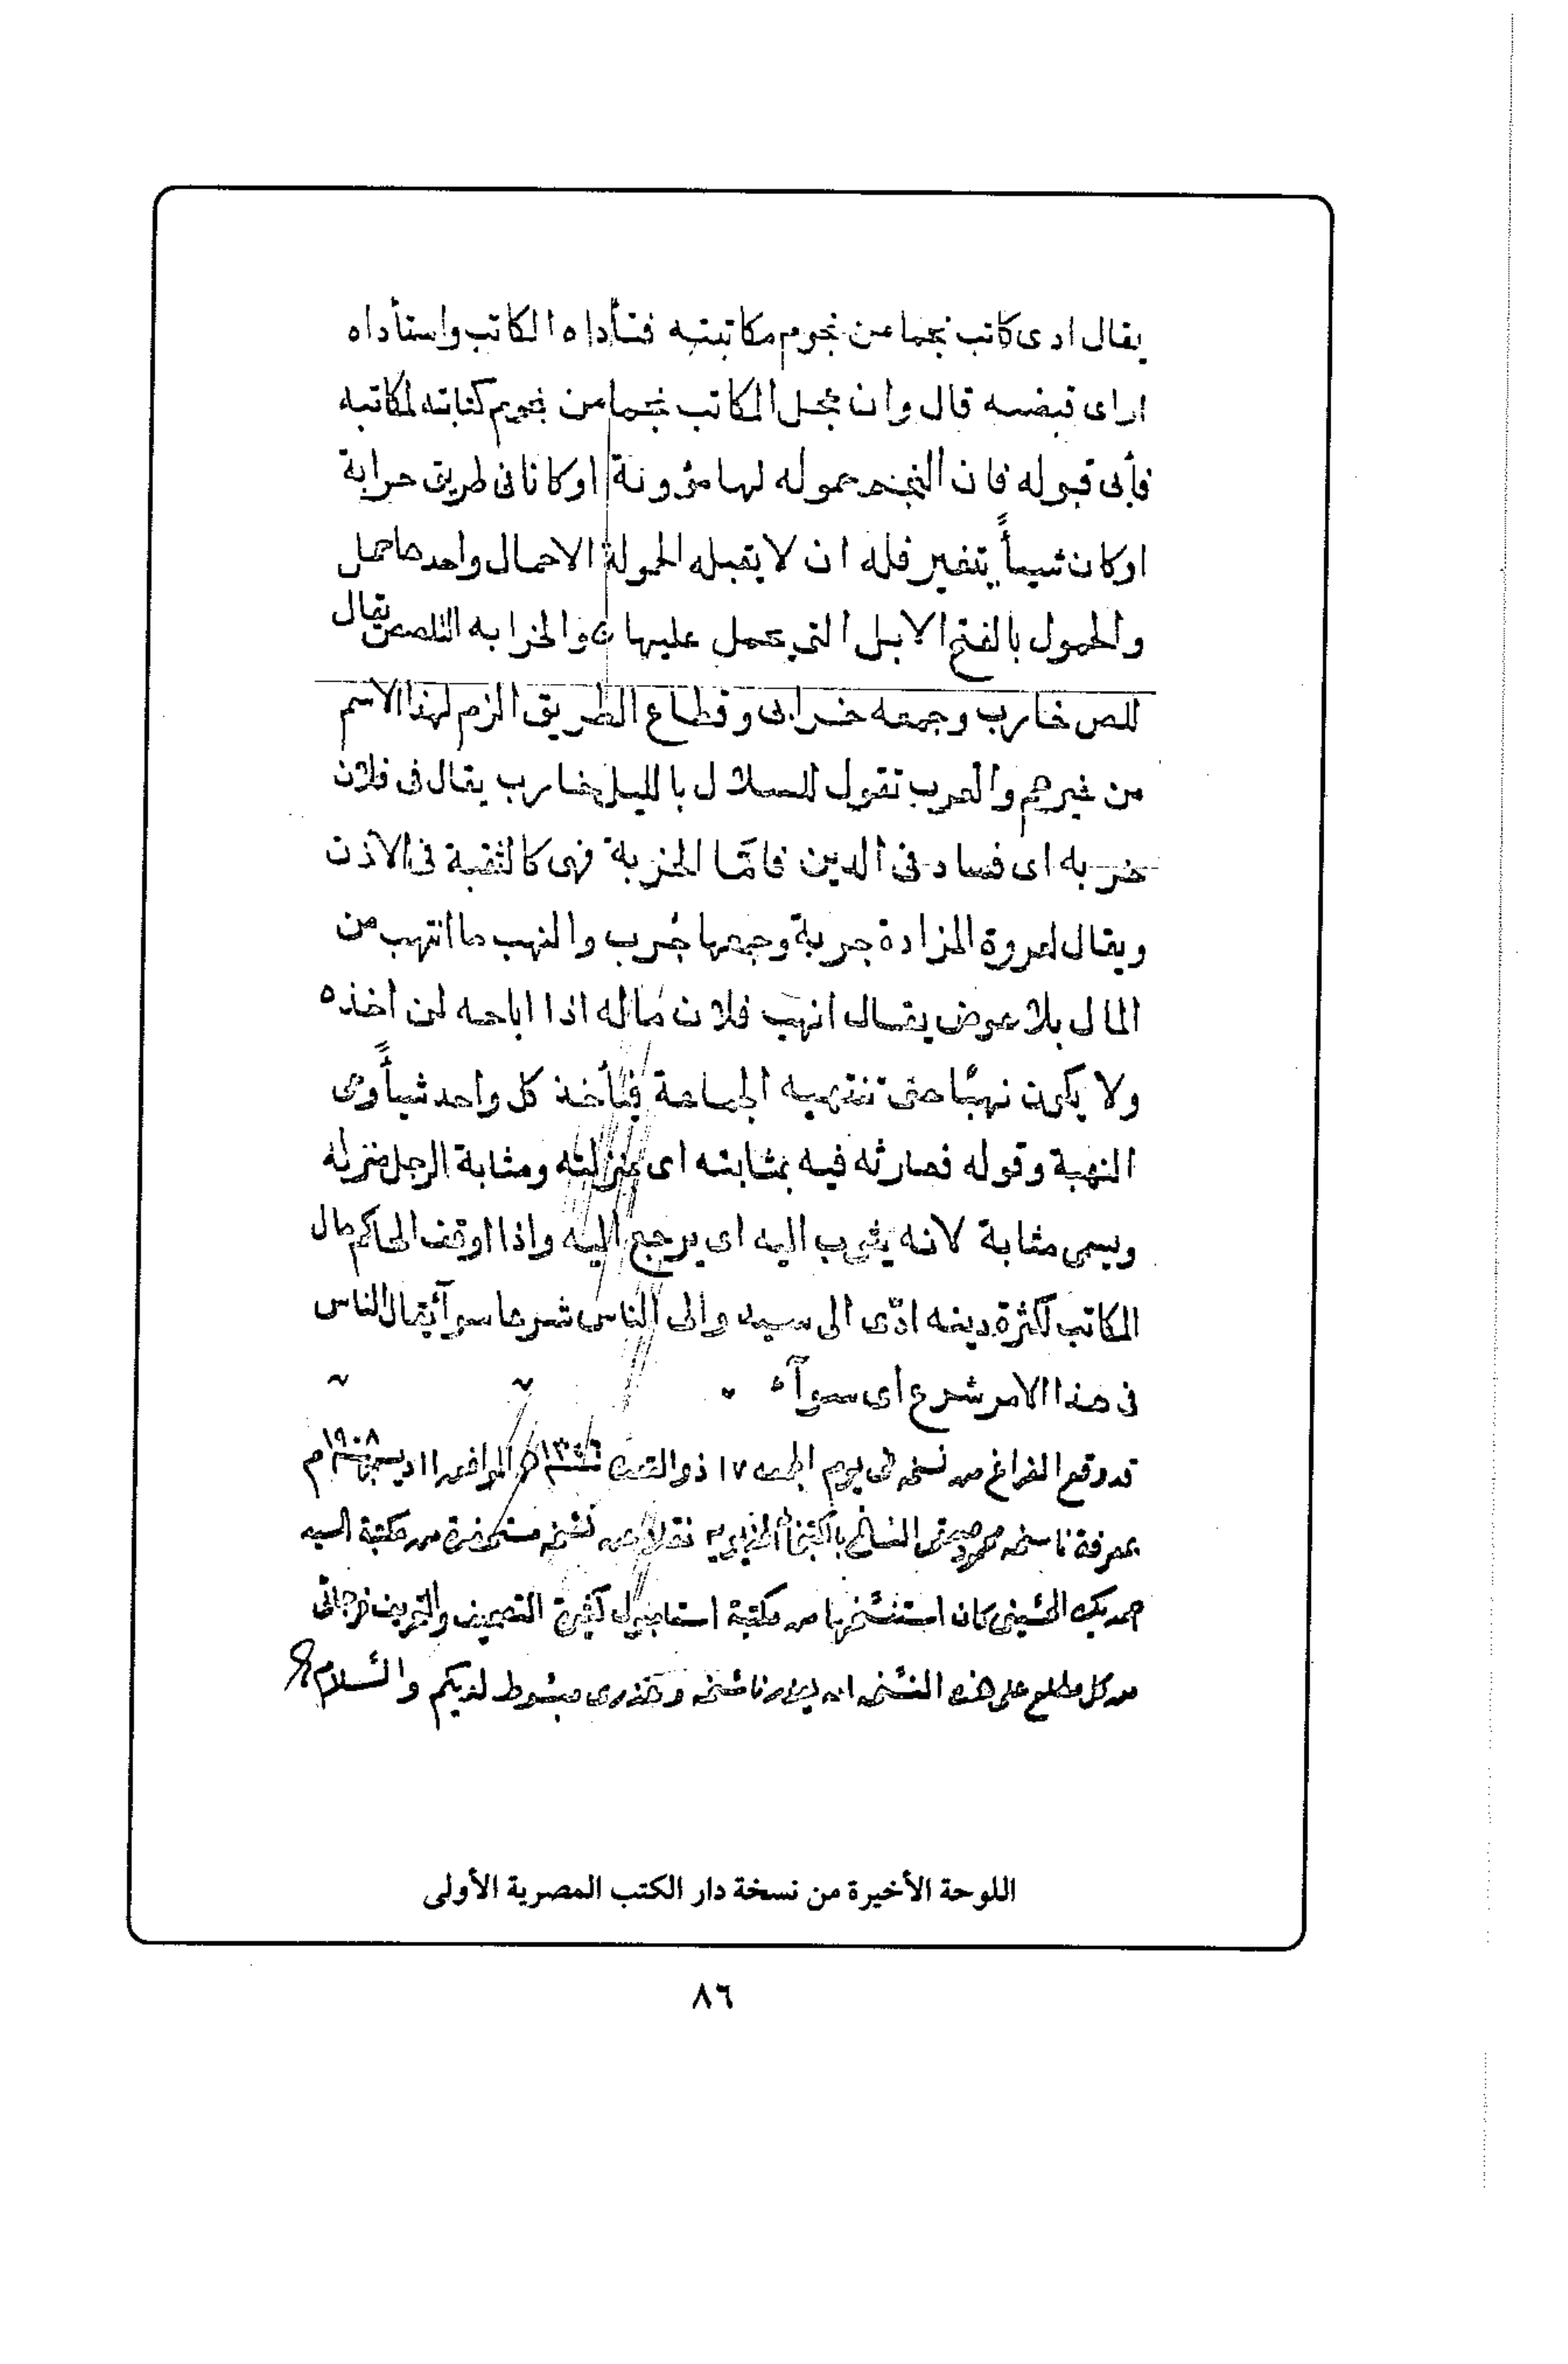 يقال ادى كاتب نجما من نجوم مكاتبته فتأداه الكاتب واستأداه
اراى قبضه قال وان عجل المكاتب نجما من نجوم كتابته لمكاتبه
فأبى قبوله فان النجم حموله لها مؤونة اوكانا فى طريق حرابة
اوكان شيأً يتغير فله ان لا يقبله الحمولة الاحمال واحدها حمل
والحمول بالفتح الابل التى يحمل عليها والخرابه التلصص يقال
للص خارب وجمعه خرابى وقطاع الطريق الزم لهذا الاسم
من غيرهم والعرب تقول للسلال بالليل خارب يقال فى فلان
خربه اى فساد فى الدين فامّا الخزبة فهى كالثقبة فى الاذن
ويقال لعروة المزادة جربة وجمعها خُرب والنهب ما انتهب من
المال بلا عوض يقال انهب فلان ماله اذا اباحه لمن اخذه
ولا يكون نهبًا حتى تنتهبه الجماعة فيأخذ كل واحد شيأً وهى
النهبة وقوله فصارثه فيه بمثابته اى بمنزلته ومثابة الرجل منزله
ويسمى مثابة لانه يثوب اليه اى يرجع اليه واذا اوقف الحاكم مال
المكاتب لكثرة دينه ادّى الى سيده والى الناس شرعا سوآ يقال الناس
فى هذا الامر شرع اى سوآء
قد وقع الفراغ من نسخه فى يوم الجمعه ١٧ ذو القعدة الموافق ١١ ديسمبر ١٩٠٨م
بمعرفة ناسخه محمود النساخ نقلا عن نسخه مستحضرة من مكتبة السيد
احمد بك الحسينى كان استنسخها من مكتبة استامبول كثيرة التصحيف والتحريف فرجائى
من كل مطلع على هذه النسخه ان وعذرى مبسوط لديكم والسلام
اللوحة الأخيرة من نسخة دار الكتب المصرية الأولى
٨٦